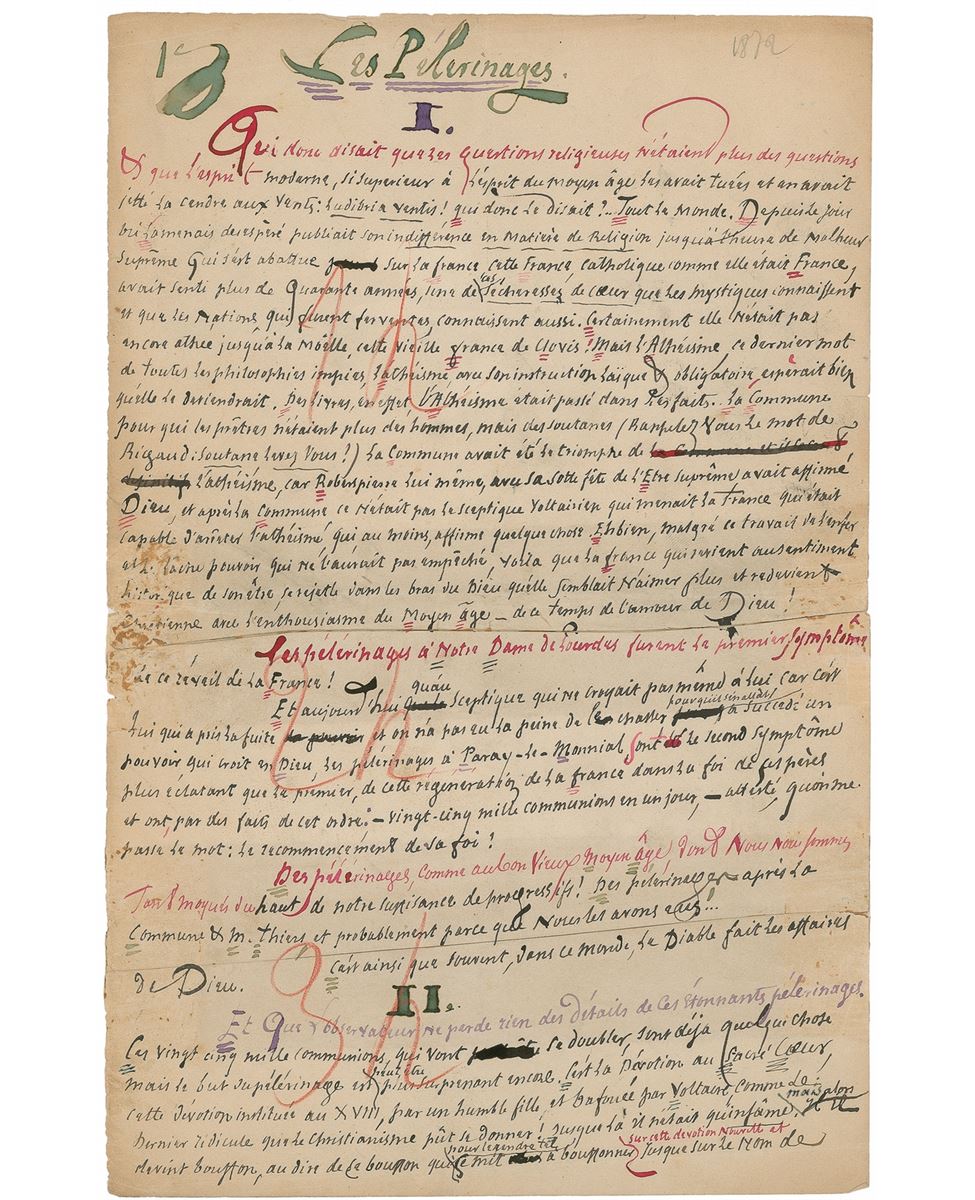 1e
1872
Les Pélerinages.
I.
Qui donc disait que les questions religieuses n'étaient plus des questions
& que l'esprit moderne, si supérieur à l'esprit du moyen âge les avait tuées et en avait
jetté la cendre aux vents: ludibria ventis! qui donc le disait?... Tout le monde. Depuis le jour
où Lamenais désespéré publiait son indifférence en Matière de Religion jusqu'à l'heure de Malheur
Suprême qui s'est abattue sur la france cette France catholique comme elle était France,
avait senti plus de Quarante années, une de ces sécheresses de cœur que les mystiques connaissent
et que les Nations qui furent ferventes, connaissent aussi. Certainement elle n'était pas
encore athée jusqu'à la Moëlle, cette vieille france de Clovis! Mais l'Athéisme ce dernier mot
de toutes les philosophies impies, l'athéisme, avec son instruction laïque & obligatoire, espérait bien
qu'elle le deviendrait. Des livres, en effet l'Athéisme était passé dans les faits. La Commune
pour qui les prêtres n'étaient plus des hommes, mais des soutanes (Rappelez Vous le mot de
Rigaud: Soutane levez Vous!) La Commune avait été le triomphe de
l'athéisme, car Roberspierre lui même, avec sa sotte fête de l'Etre suprême avait affirmé
Dieu, et après la Commune ce n'était pas le sceptique Voltairien qui menait la France qui était
capable d'arrêter l'athéisme qui au moins, affirme quelque chose. Eh bien, malgré ce travail de l'enfer
et le lâche pouvoir qui ne l'aurait pas empêché, voilà que la france qui revient au sentiment
historique de son être, se rejette dans les bras du Dieu qu'elle semblait n'aimer plus et redevient
chrétienne avec l'enthousiasme du Moyen âge — de ce temps de l'amour de Dieu!
Les pélérinages à Notre Dame de Lourdes furent le premier symptôme
de ce réveil de la France!
Et aujourd'hui qu'au sceptique qui ne croyait pas même à lui car c'est
lui qui a pris la fuite et on n'a pas eu la peine de le chasser pour qu'il s'en allât a succédé un
pouvoir qui croit en Dieu, les pélérinages à Paray-le-Monnial sont le second symptôme
plus éclatant que le premier, de cette régénération de la france dans la foi de ses pères
et ont, par des faits de cet ordre: — vingt-cinq mille communions en un jour, — attesté, qu'on me
passe le mot: le recommencement de sa foi!
Des pélérinages, comme au bon Vieux Moyen âge, dont Nous nous sommes
tant moqués du haut de notre suffisance de progressifs! Des pélérinages après la
Commune & M. Thiers et probablement parce que Nous les avons eus!...
C'est ainsi que souvent, dans ce monde, le Diable fait les affaires
de Dieu.
II.
Et Que l'observateur ne perde rien des détails de ces étonnants pélérinages.
Ces vingt cinq mille communions, qui vont se doubler, sont déjà quelque chose
mais le but du pélérinage est peut être plus surprenant encore. C'est la Dévotion au Sacré Cœur,
cette dévotion instituée au XVIII, par un humble fille, et bafouée par Voltaire comme le
dernier ridicule que le Christianisme pût se donner! Jusque là il n'était qu'infâme. mais alors il
devint bouffon, au dire de ce bouffon qui pour le rendre tel se mit à bouffonner sur cette dévotion Nouvelle et jusque sur le Nom de